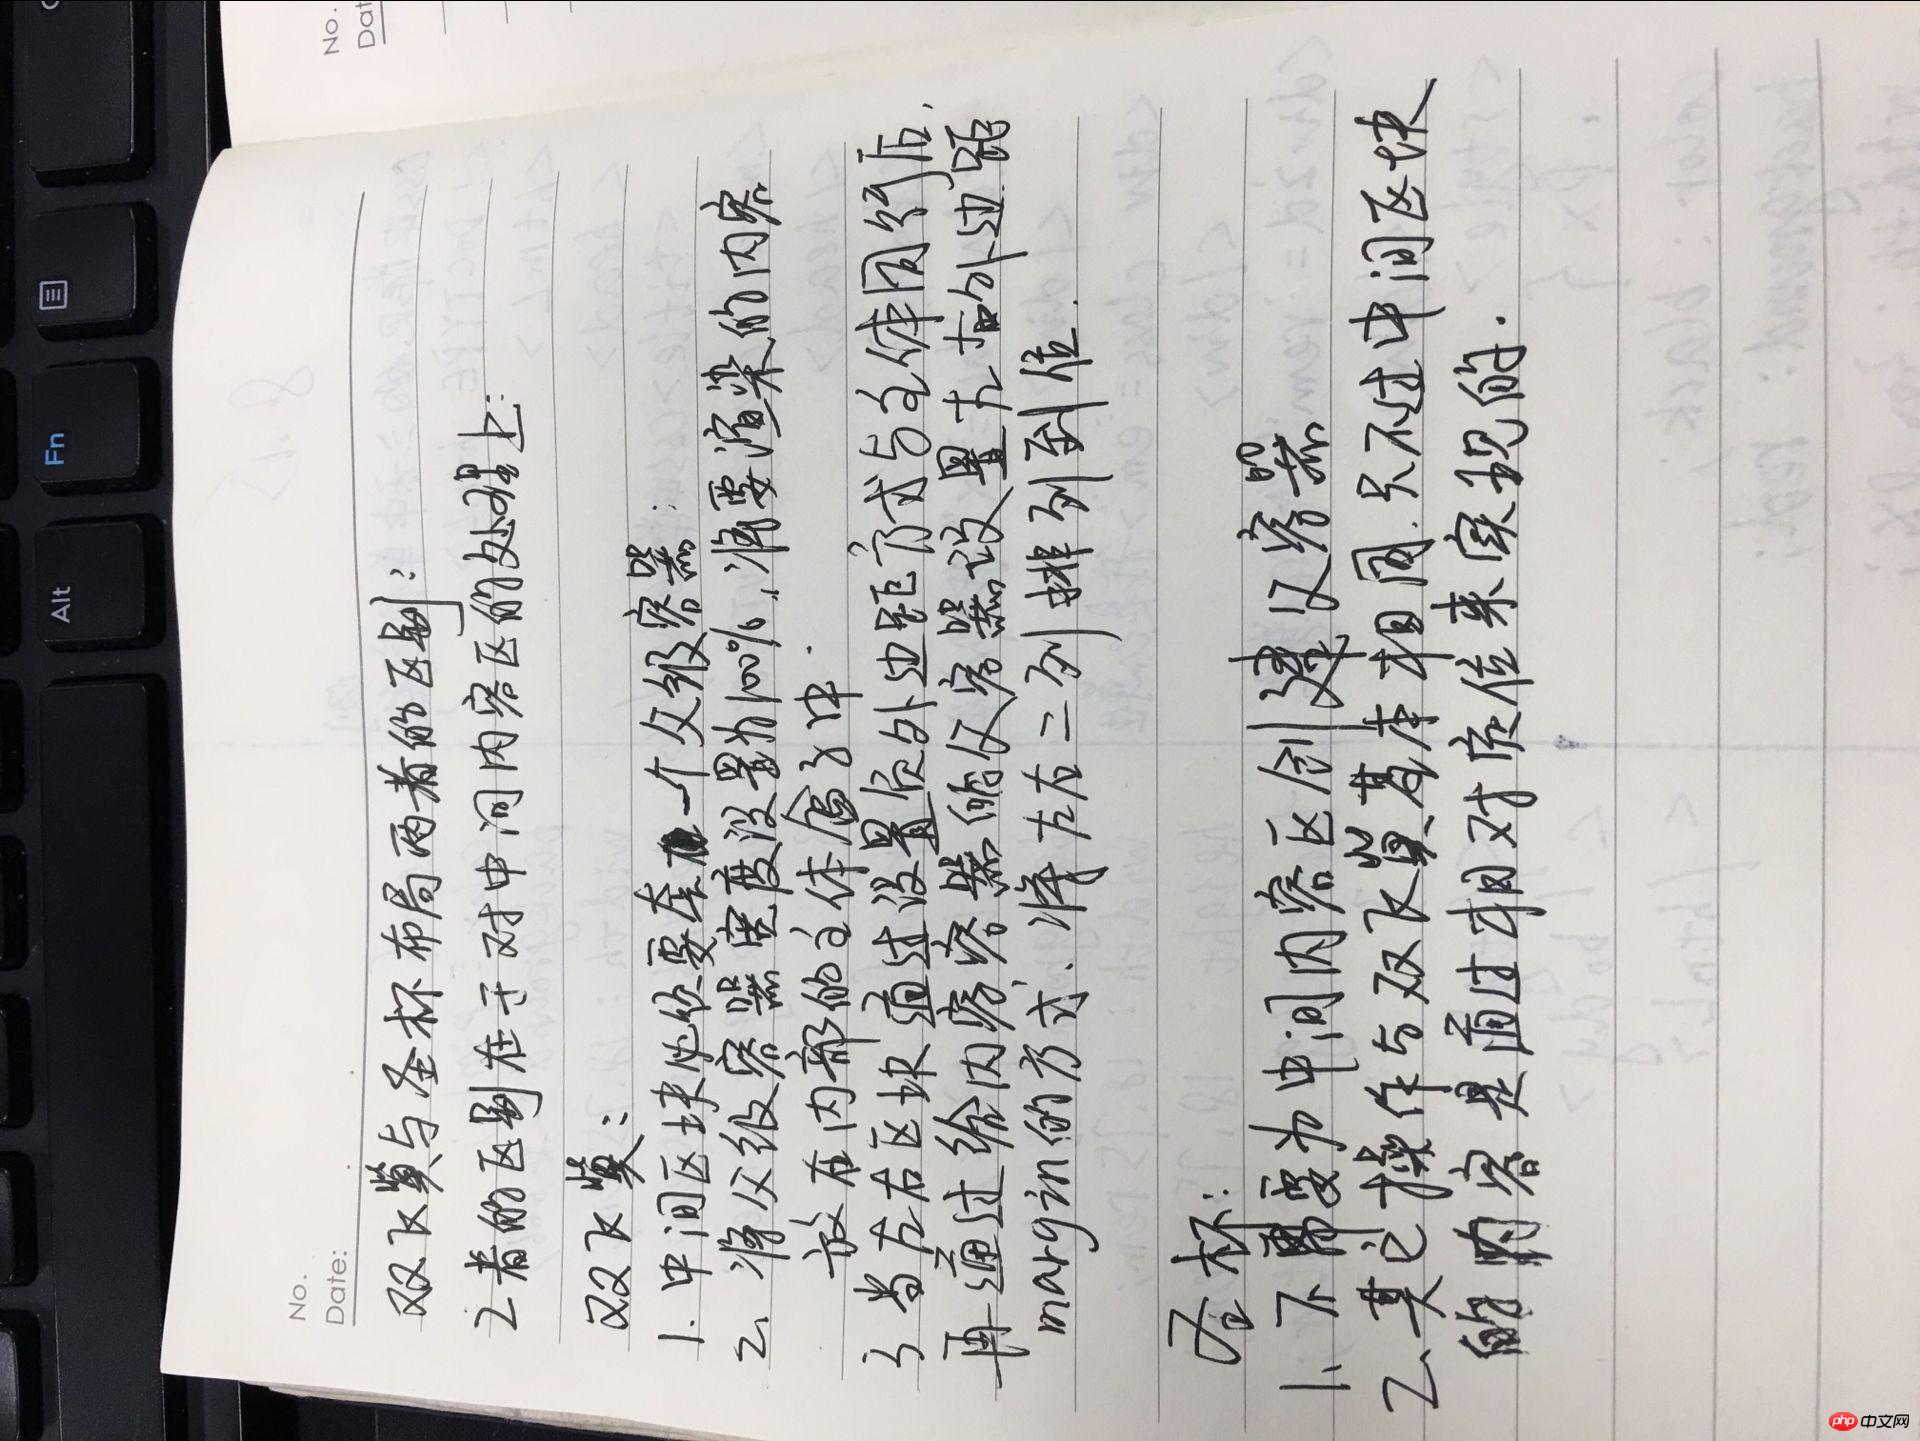 No.
Date:
双飞翼与圣杯布局两者的区别:
2者的区别在于对中间内容区的处理上:
双飞翼:
1. 中间区块必须要套一个父级容器.
2、将父级容器宽度设置为100%,将要渲染的内容
放在内部的主体盒子中.
3 当左右区块通过设置负外边距方式与主体同行后,
再通过给内容器的父容器设置左右外边距
margin的方式.将左右二列排列到位.
圣杯:
1、不需要为中间内容区创建父容器
2、其它操作与双飞翼基本相同.只不过中间区块
的内容是通过相对定位来实现的.
No.
Dat
Alt
Fn
php 中文网